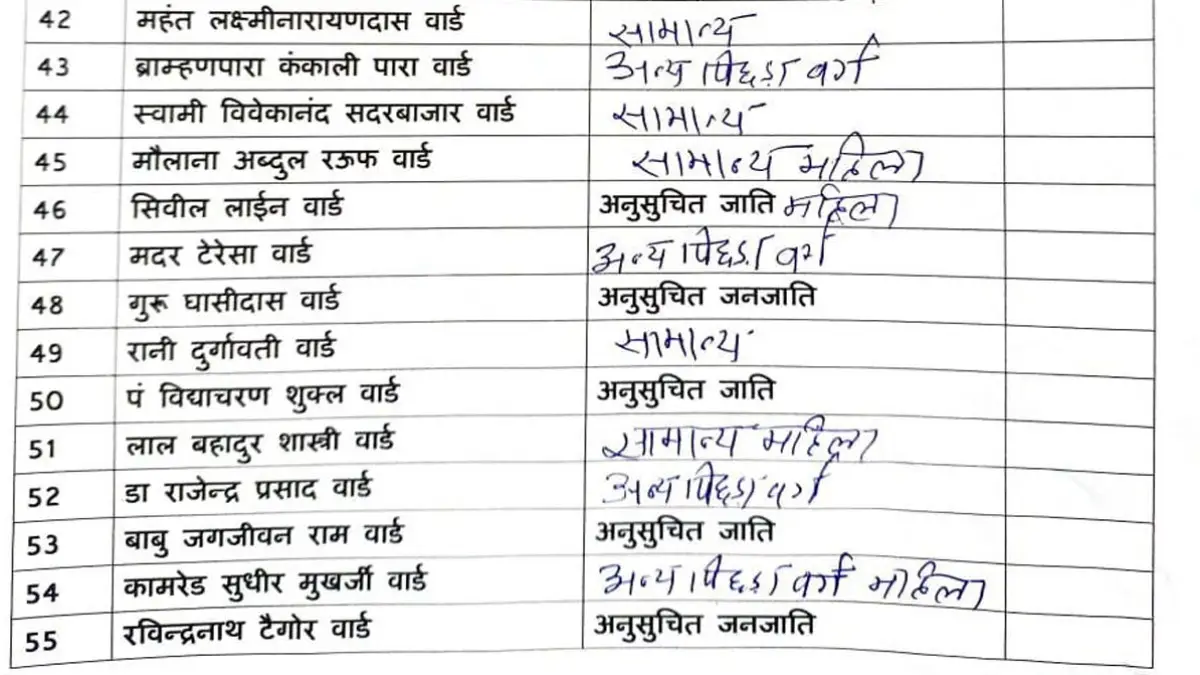 42 महंत लक्ष्मीनारायणदास वार्ड सामान्य
43 ब्राम्हणपारा कंकाली पारा वार्ड अन्य पिछड़ा वर्ग
44 स्वामी विवेकानंद सदरबाजार वार्ड सामान्य
45 मौलाना अब्दुल रऊफ वार्ड सामान्य महिला
46 सिवील लाईन वार्ड अनुसुचित जाति महिला
47 मदर टेरेसा वार्ड अन्य पिछड़ा वर्ग
48 गुरू घासीदास वार्ड अनुसुचित जनजाति
49 रानी दुर्गावती वार्ड सामान्य
50 पं विद्याचरण शुक्ल वार्ड अनुसुचित जाति
51 लाल बहादुर शास्त्री वार्ड सामान्य महिला
52 डा राजेन्द्र प्रसाद वार्ड अन्य पिछड़ा वर्ग
53 बाबु जगजीवन राम वार्ड अनुसुचित जाति
54 कामरेड सुधीर मुखर्जी वार्ड अन्य पिछड़ा वर्ग महिला
55 रविन्द्रनाथ टैगोर वार्ड अनुसुचित जनजाति